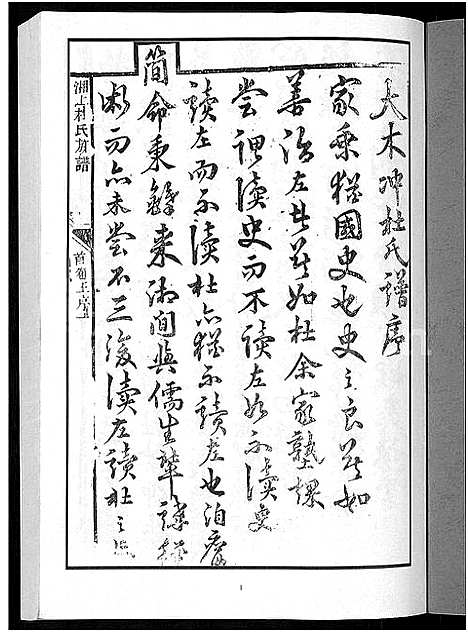 大木冲杜氏譜序
家乘猶國史也史之良莫如
善治左者莫如杜余家塾課
嘗謂讀史而不讀左如不讀史
讀左而不讀杜亦猶不讀左也洎膺
簡命秉鐸來湘間與儒生輩講
斷而亦未嘗不三復讀左讀杜之
湘上杜氏族譜
首卷上序
1